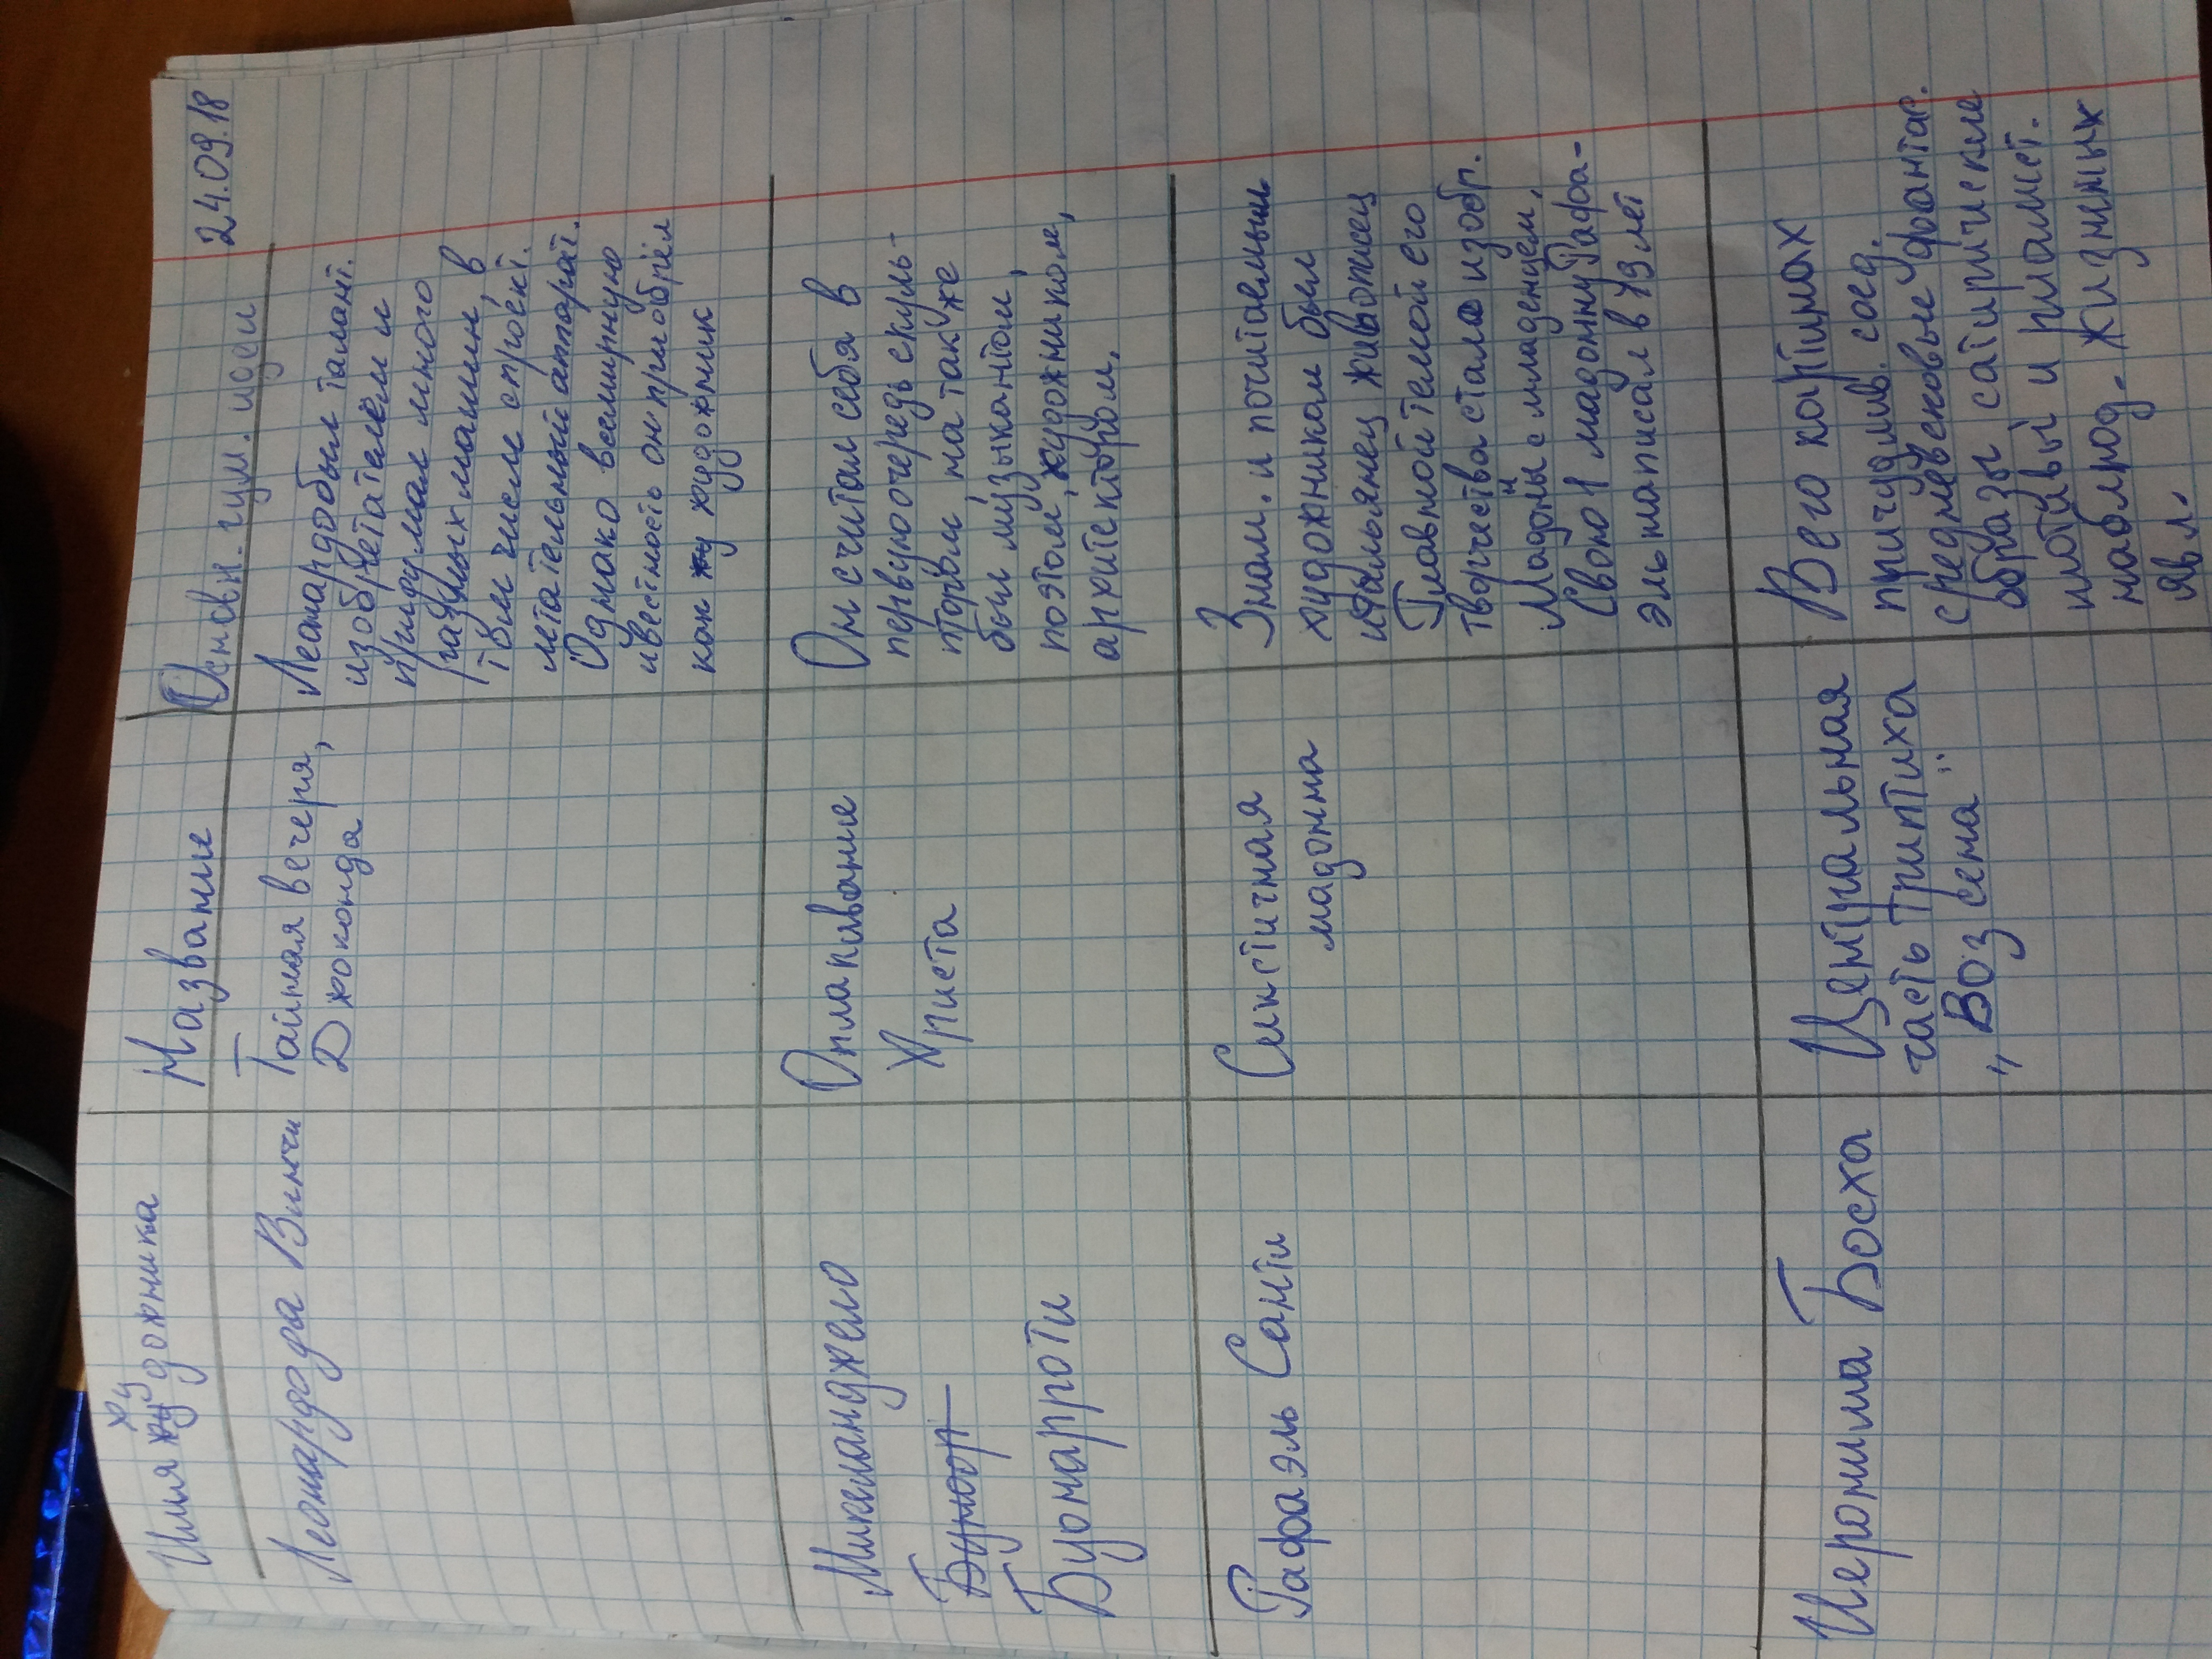 24.09.18
Имя жу художника
Название
Основн. гум. идеи
Леонардода Винчи
Тайная вечеря,
Джоконда
Леонардобыл талант.
изобретателем и
придумал много
разных машин, в
том числе спроект.
летательный аппарат.
Однако всемирную
ивестность он приобрёл
как жу художник
Микеланджело
Буноорп
Буонарроти
Оплакивание
Христа
Он считал себя в
первую очередь скуль-
птором, на также
был музыкантом,
поэтом, художником,
архитектором.
Рафаэль Санти
Сикстинная
мадонна
Знам. и почитаемым
художником был
итальянец живописец
Главной темой его
творчества стало изобр.
Мадоны с младенцем,
Свою 1 мадонну Рафа-
эль написал в 19 лет
Иеронима Босха
Центральная
часть триптиха
"Воз сена"
В его картинах
причудлив. соед.
средневековые фантаст.
образы сатирические
мотивы и риомет.
наблюд. жизнных
явл.